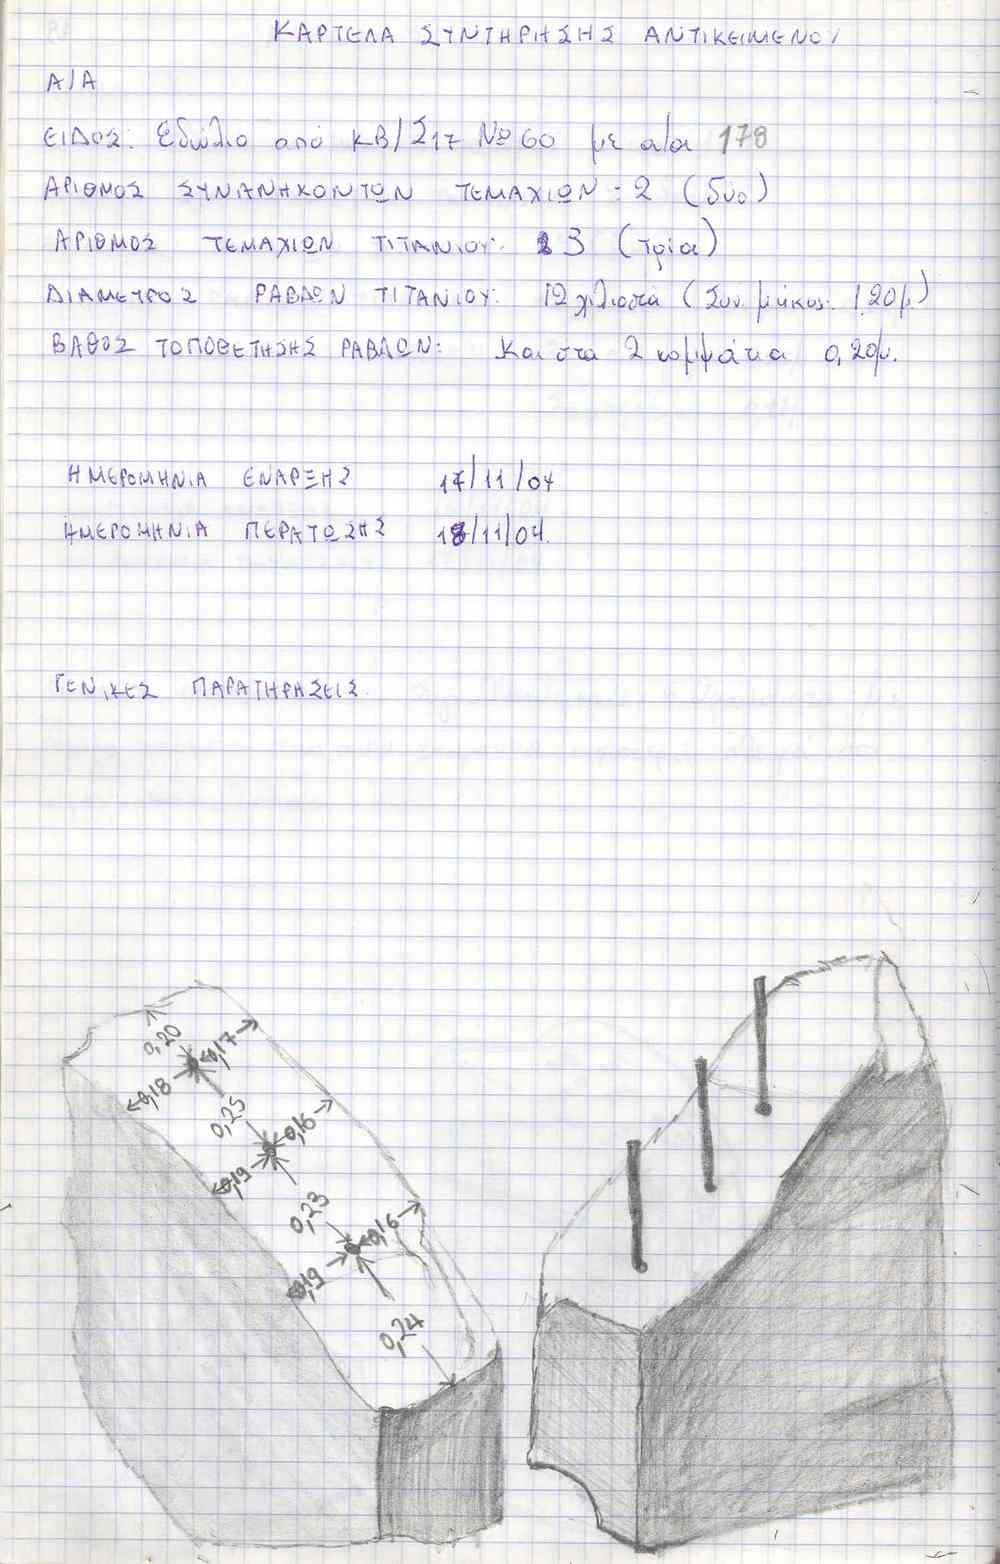 ΚΑΡΤΕΛΑ ΣΥΝΤΗΡΗΣΗΣ ΑΝΤΙΚΕΙΜΕΝΟΥ
Α/Α
ΕΙΔΟΣ: Εδώλιο από ΚΒ/Σ17 Νο 60 με α/α 178
ΑΡΙΘΜΟΣ ΣΥΝΑΝΗΚΟΝΤΩΝ ΤΕΜΑΧΙΩΝ: 2 (δύο)
ΑΡΙΘΜΟΣ ΤΕΜΑΧΙΩΝ ΤΙΤΑΝΙΟΥ: 3 (τρία)
ΔΙΑΜΕΤΡΟΣ ΡΑΒΔΩΝ ΤΙΤΑΝΙΟΥ: 12 χιλιοστά (Συν. μήκος: 1,20μ.)
ΒΑΘΟΣ ΤΟΠΟΘΕΤΗΣΗΣ ΡΑΒΔΩΝ: Και στα 2 κομμάτια 0,20μ.
ΗΜΕΡΟΜΗΝΙΑ ΕΝΑΡΞΗΣ 17/11/04
ΗΜΕΡΟΜΗΝΙΑ ΠΕΡΑΤΩΣΗΣ 18/11/04.
ΓΕΝΙΚΕΣ ΠΑΡΑΤΗΡΗΣΕΙΣ.
0,20
0,17
0,18
0,25
0,16
0,19
0,23
0,16
0,19
0,24